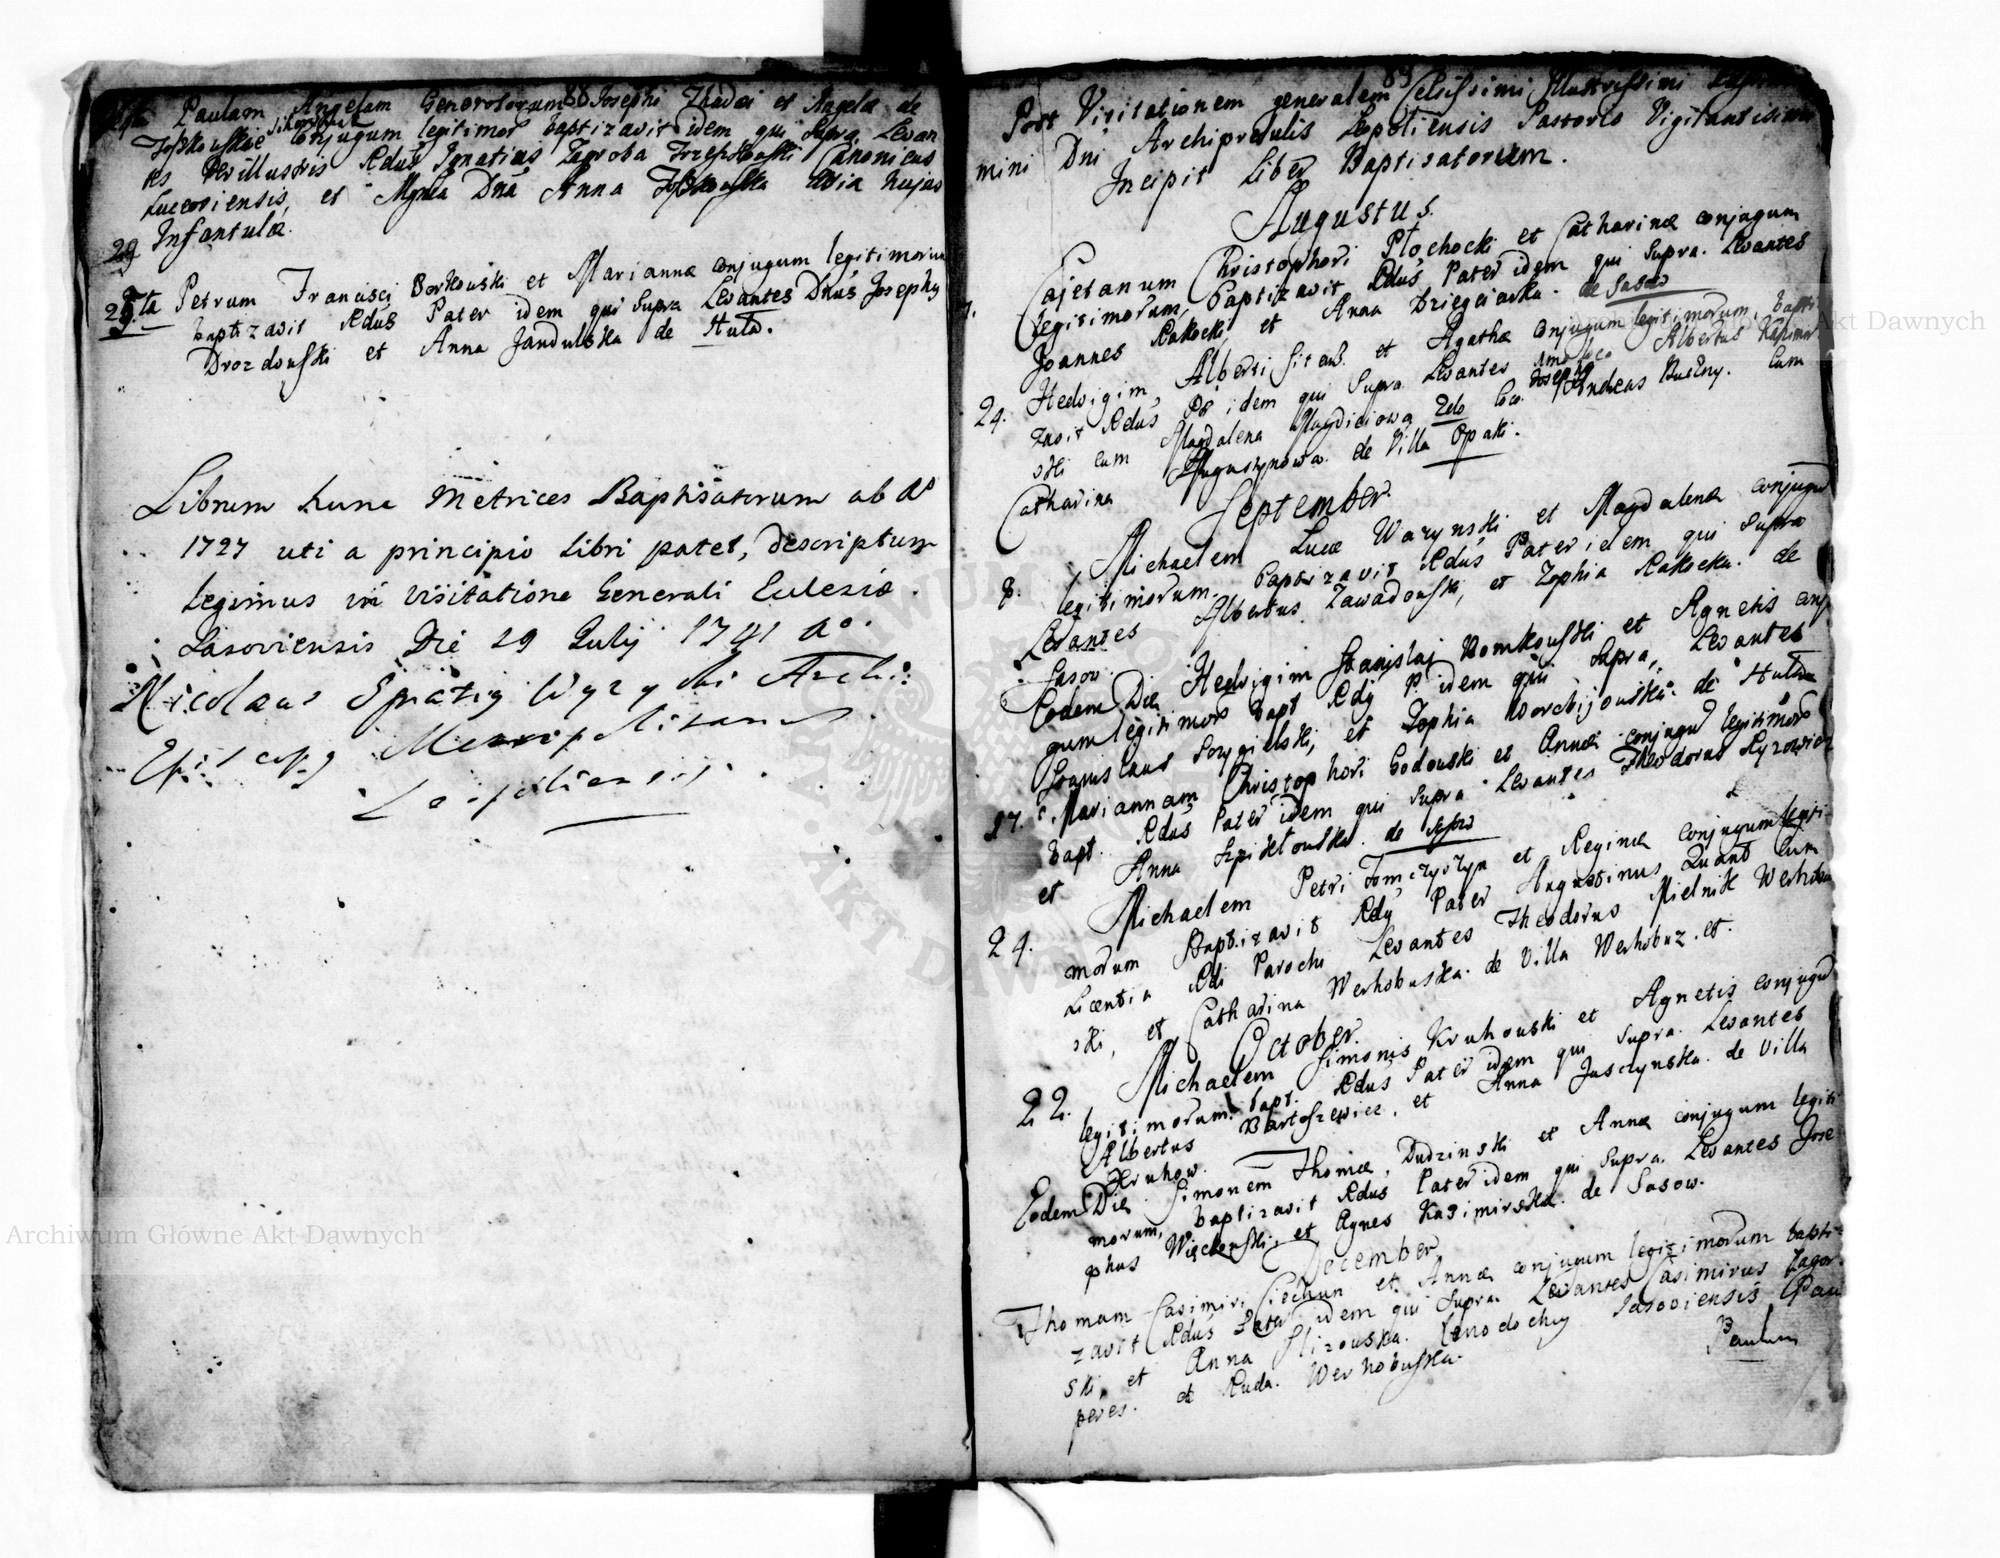 88
Paulam Angelam Generosorum Josephi Thadæi et Angelæ de
conjugum legitimor baptizavit idem qui Supra Levan
tes Perillustris Rdus Ignatius Zagroba Trzepkouski Canonicus
Luceoriensis, et Mgnca Dna Anna Avia hujus
Infantulæ.
29
Petrum Francisci Borkouski et Mariannæ conjugum legitimorum
baptizavit Rdus Pater idem qui Supra Levantes Dnus Josephus
Drozdouski et Anna Jandulska de Huta.
Librum hunc Metrices Baptisatorum ab Ao
1727 uti a principio libri patet, descriptum
legimus in visitatione Generali Ecclesiæ
Sasoviensis Die 29 Julij 1741 Ao.
Nicolaus Ignatig Wyzycki Archi:
Episcopg Metropolitanus
Leopoliensis.
89
Post Visitationem generalem Celsissimi Illustrissimi
mini Dni Archipresulis Leopoliensis Pastoris Vigilantissimi
Incipit Liber Baptisatorum.
Augustus.
7. Cajetanum Christophori Płochocki et Catharinæ conjugum
legitimorum, baptizavit Rdus Pater idem qui Supra. Levantes
Joannes Rakocki et Anna Dziegciarka. de Sasow
24. Hedvigim, Alberti et Agathæ conjugum legitimorum, bapti
zavit Rdus Pr idem qui Supra Levantes Albertus Kazimir
ski cum Magdalena 2do loco. Andreas Cum
Catharina Augustynowa. de Villa Opaki.
September.
8. Michaelem Lucæ Wazynski et Magdalenæ conjugu
legitimorum. baptizavit Rdus Pater idem qui Supra
Levantes Albertus Zawadouski, et Zophia Rakocka. de
Sasow.
Eodem Die Hedvigim Stanislai Romkouski et Agnetis conju
gum legitimor bapt Rdg P. idem qui Supra, Levantes
Stanislaus et Zophia de Huta
17. Mariannam Christophori Godouski et Annæ conjugu legitimor
bapt. Rdus Pater idem qui Supra Levantes Theodorus
et Anna de
24. Michaelem Petri Tomczyszyn et Reginæ conjugum legiti
morum Baptizavit Rdg Pater Augustinus Cum
Licentia Rdi Parochi Levantes Theodorus Mielnik Werhobu
ski, et Catharina Werhobuska. de Villa Werhobuz. et.
October.
22. Michaelem Simonis Kruhouski et Agnetis conjugu
legitimorum. bapt. Rdus Pater idem qui Supra. Levantes
Albertus Bartoszewicz. et Anna Juszynska. de Villa
Kruhow.
Eodem Die Simonem Thomæ. Dudzinski et Annæ conjugum legiti
morum, baptizavit Rdus Pater idem qui Supra. Levantes Jose
phus Więckouski, et Agnes Kazimirska. de Sasow.
December
Thomam Casimiri Ciechun et Annæ conjugum legitimorum bapti
zavit Rdus Pater idem qui Supra. Levantes Casimirus Zagor
ski, et Anna Slizouska. Xenodochy Sasoviensis Pau
peres. de Ruda. Werhobuska.
Paulum
Archiwum Główne Akt Dawnych
Archiwum Główne Akt Dawnych